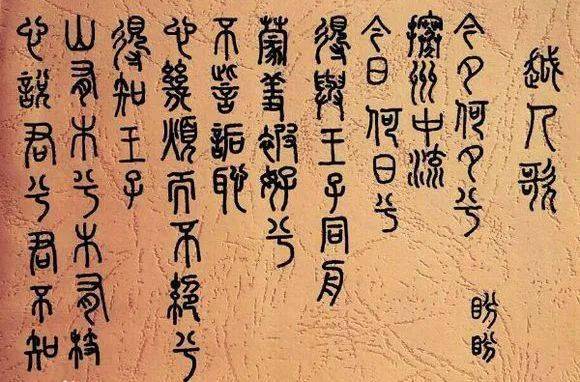 越人歌
盼盼
今夕何夕兮
搴洲中流
今日何日兮
得與王子同舟
蒙羞被好兮
不訾詬恥
心幾煩而不絕兮
得知王子
山有木兮木有枝
心說君兮君不知